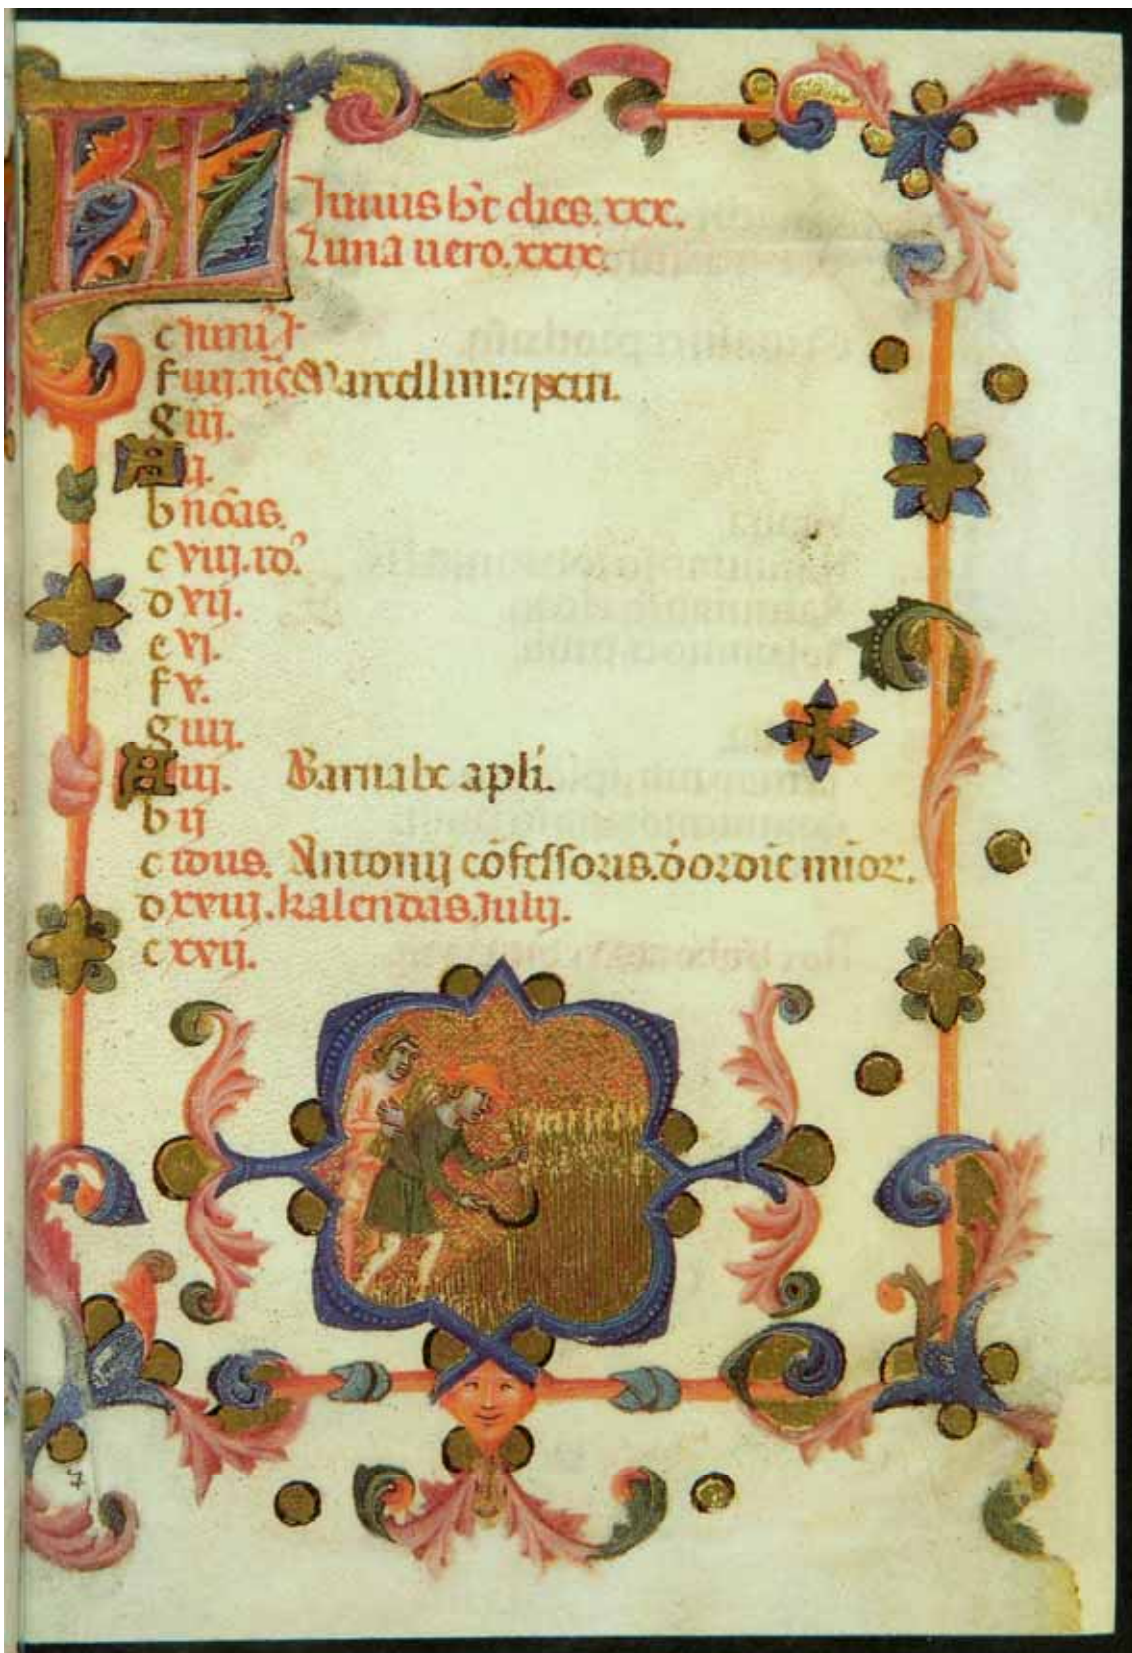 Kl Junius ħt dies. xxx.
Luna uero. xxix.
e Junii
f iiij. nc Marcellini. ⁊ petri.
g iij.
A ij.
b nõas.
c viij. id'.
d vij.
e vj.
f v.
g iiij.
A iij. Barnabe apłi.
b ij
c idus. Antonij cõfessoris. d̓ ordĩe mĩor.
d xviij. kalendas. Julij.
e xvij.